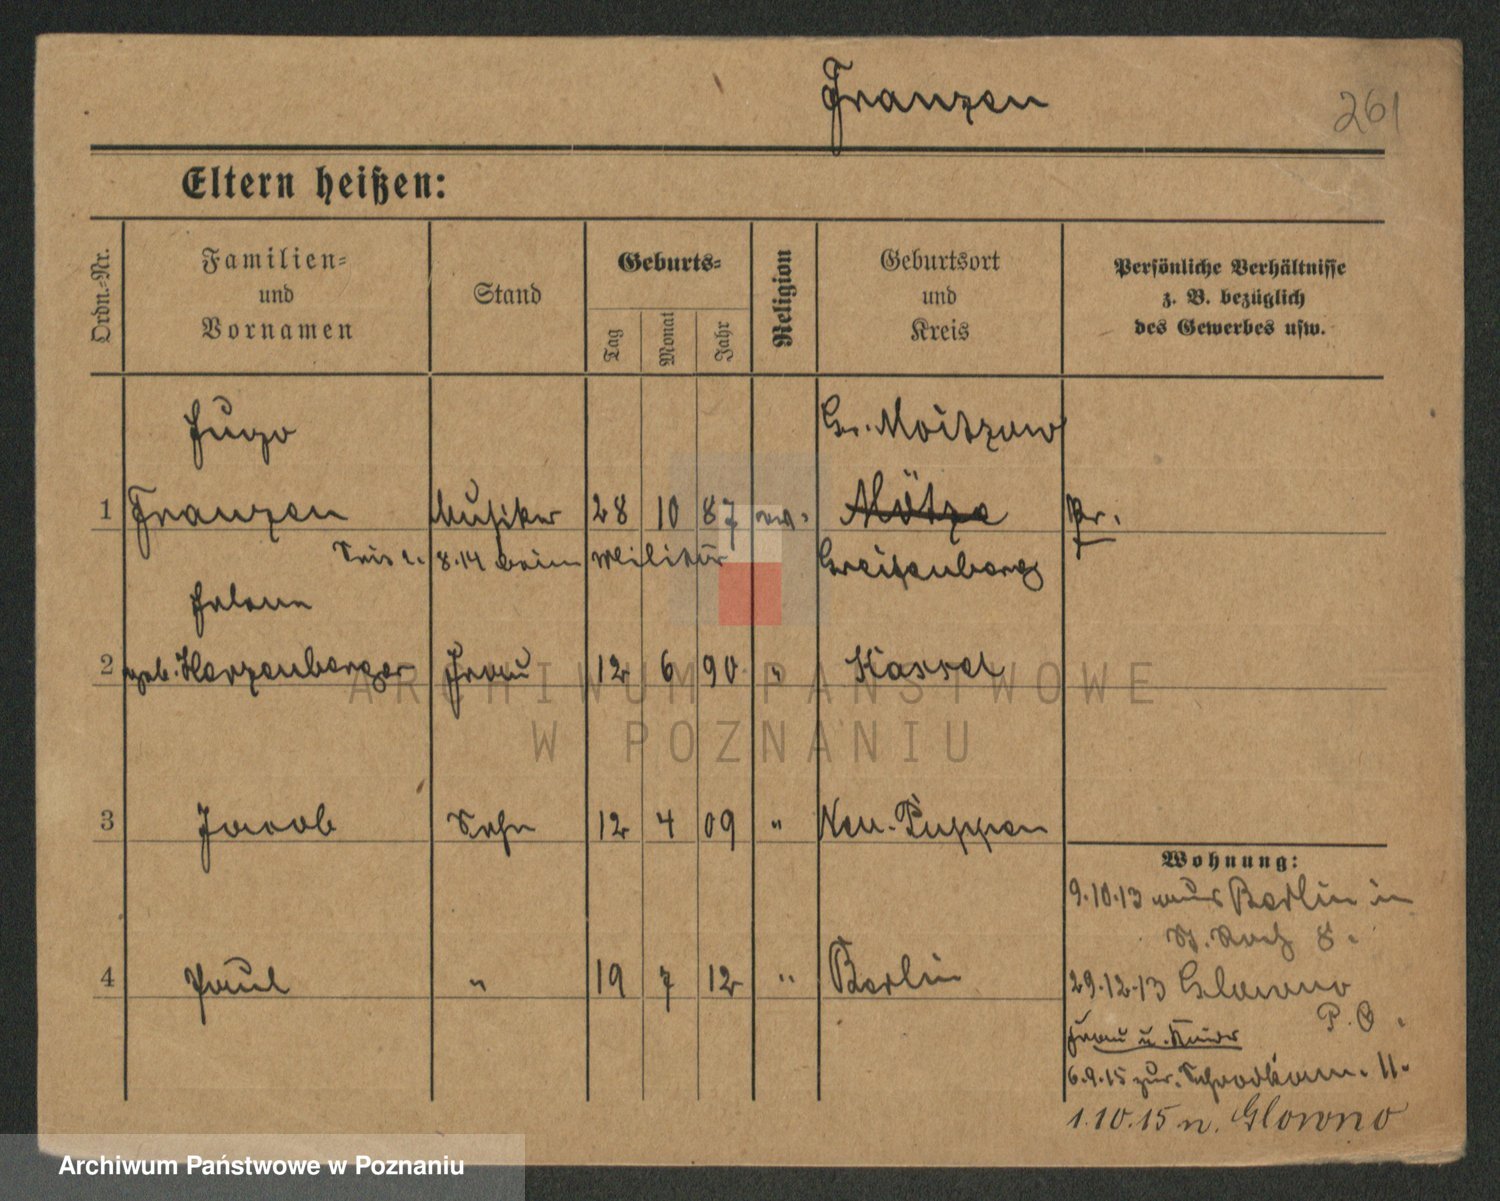 Franzen
261
Eltern heißen:
Ordn.-Nr.
Familien-
und
Vornamen
Stand
Geburts-
Tag
Monat
Jahr
Religion
Geburtsort
und
Kreis
Persönliche Verhältnisse
z. B. bezüglich
des Gewerbes usw.
Hugo
Gr. Moitzow
1 Franzen Musiker 28 10 87 ev. Mötze Pr.
8.14 beim Militär Greifenberg
Helene
2 geb. Herzenberger Frau 12 6 90 " Kassel
3 Jacob Sohn 12 4 09 " Neu-Puppen
Wohnung:
9.10.13 aus Berlin in
St. Roch 8.
4 Paul " 19 7 12 " Berlin
29.12.13 Glowno
P. O.
Frau u. Kinder
6.9.15 zur. Schrodkam. 11.
1.10.15 n. Glowno
ARCHIWUM PAŃSTWOWE
W POZNANIU
Archiwum Państwowe w Poznaniu